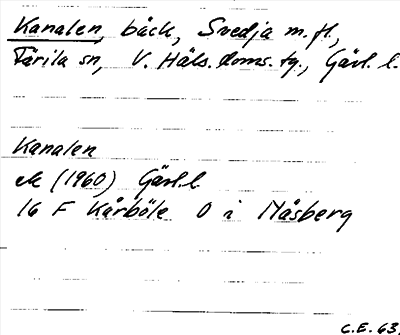 Kanalen, bäck, Svedja m.fl.,
Färila sn, V. Häls. doms. tg., Gävl. l.
Kanalen
ek (1960) Gävl. l
16 F Kårböle O i Måsberg
C.E. 63.